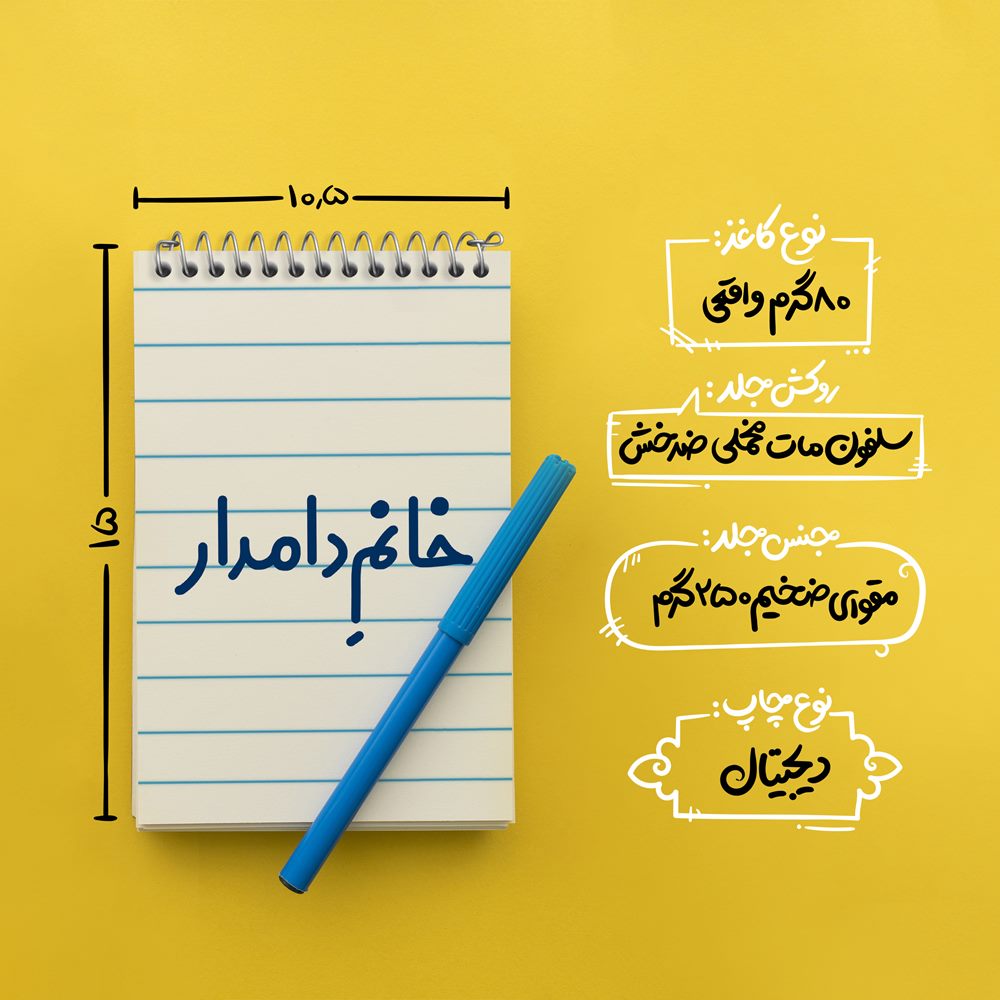 ۱۰,۵
۱۵
خانمِ دامدار
نوع کاغذ:
۸۰ گرم واقعی
روکش جلد:
سلفون مات مخملی ضدخش
جنس جلد:
مقوای ضخیم ۲۵۰ گرم
نوع چاپ:
دیجیتال